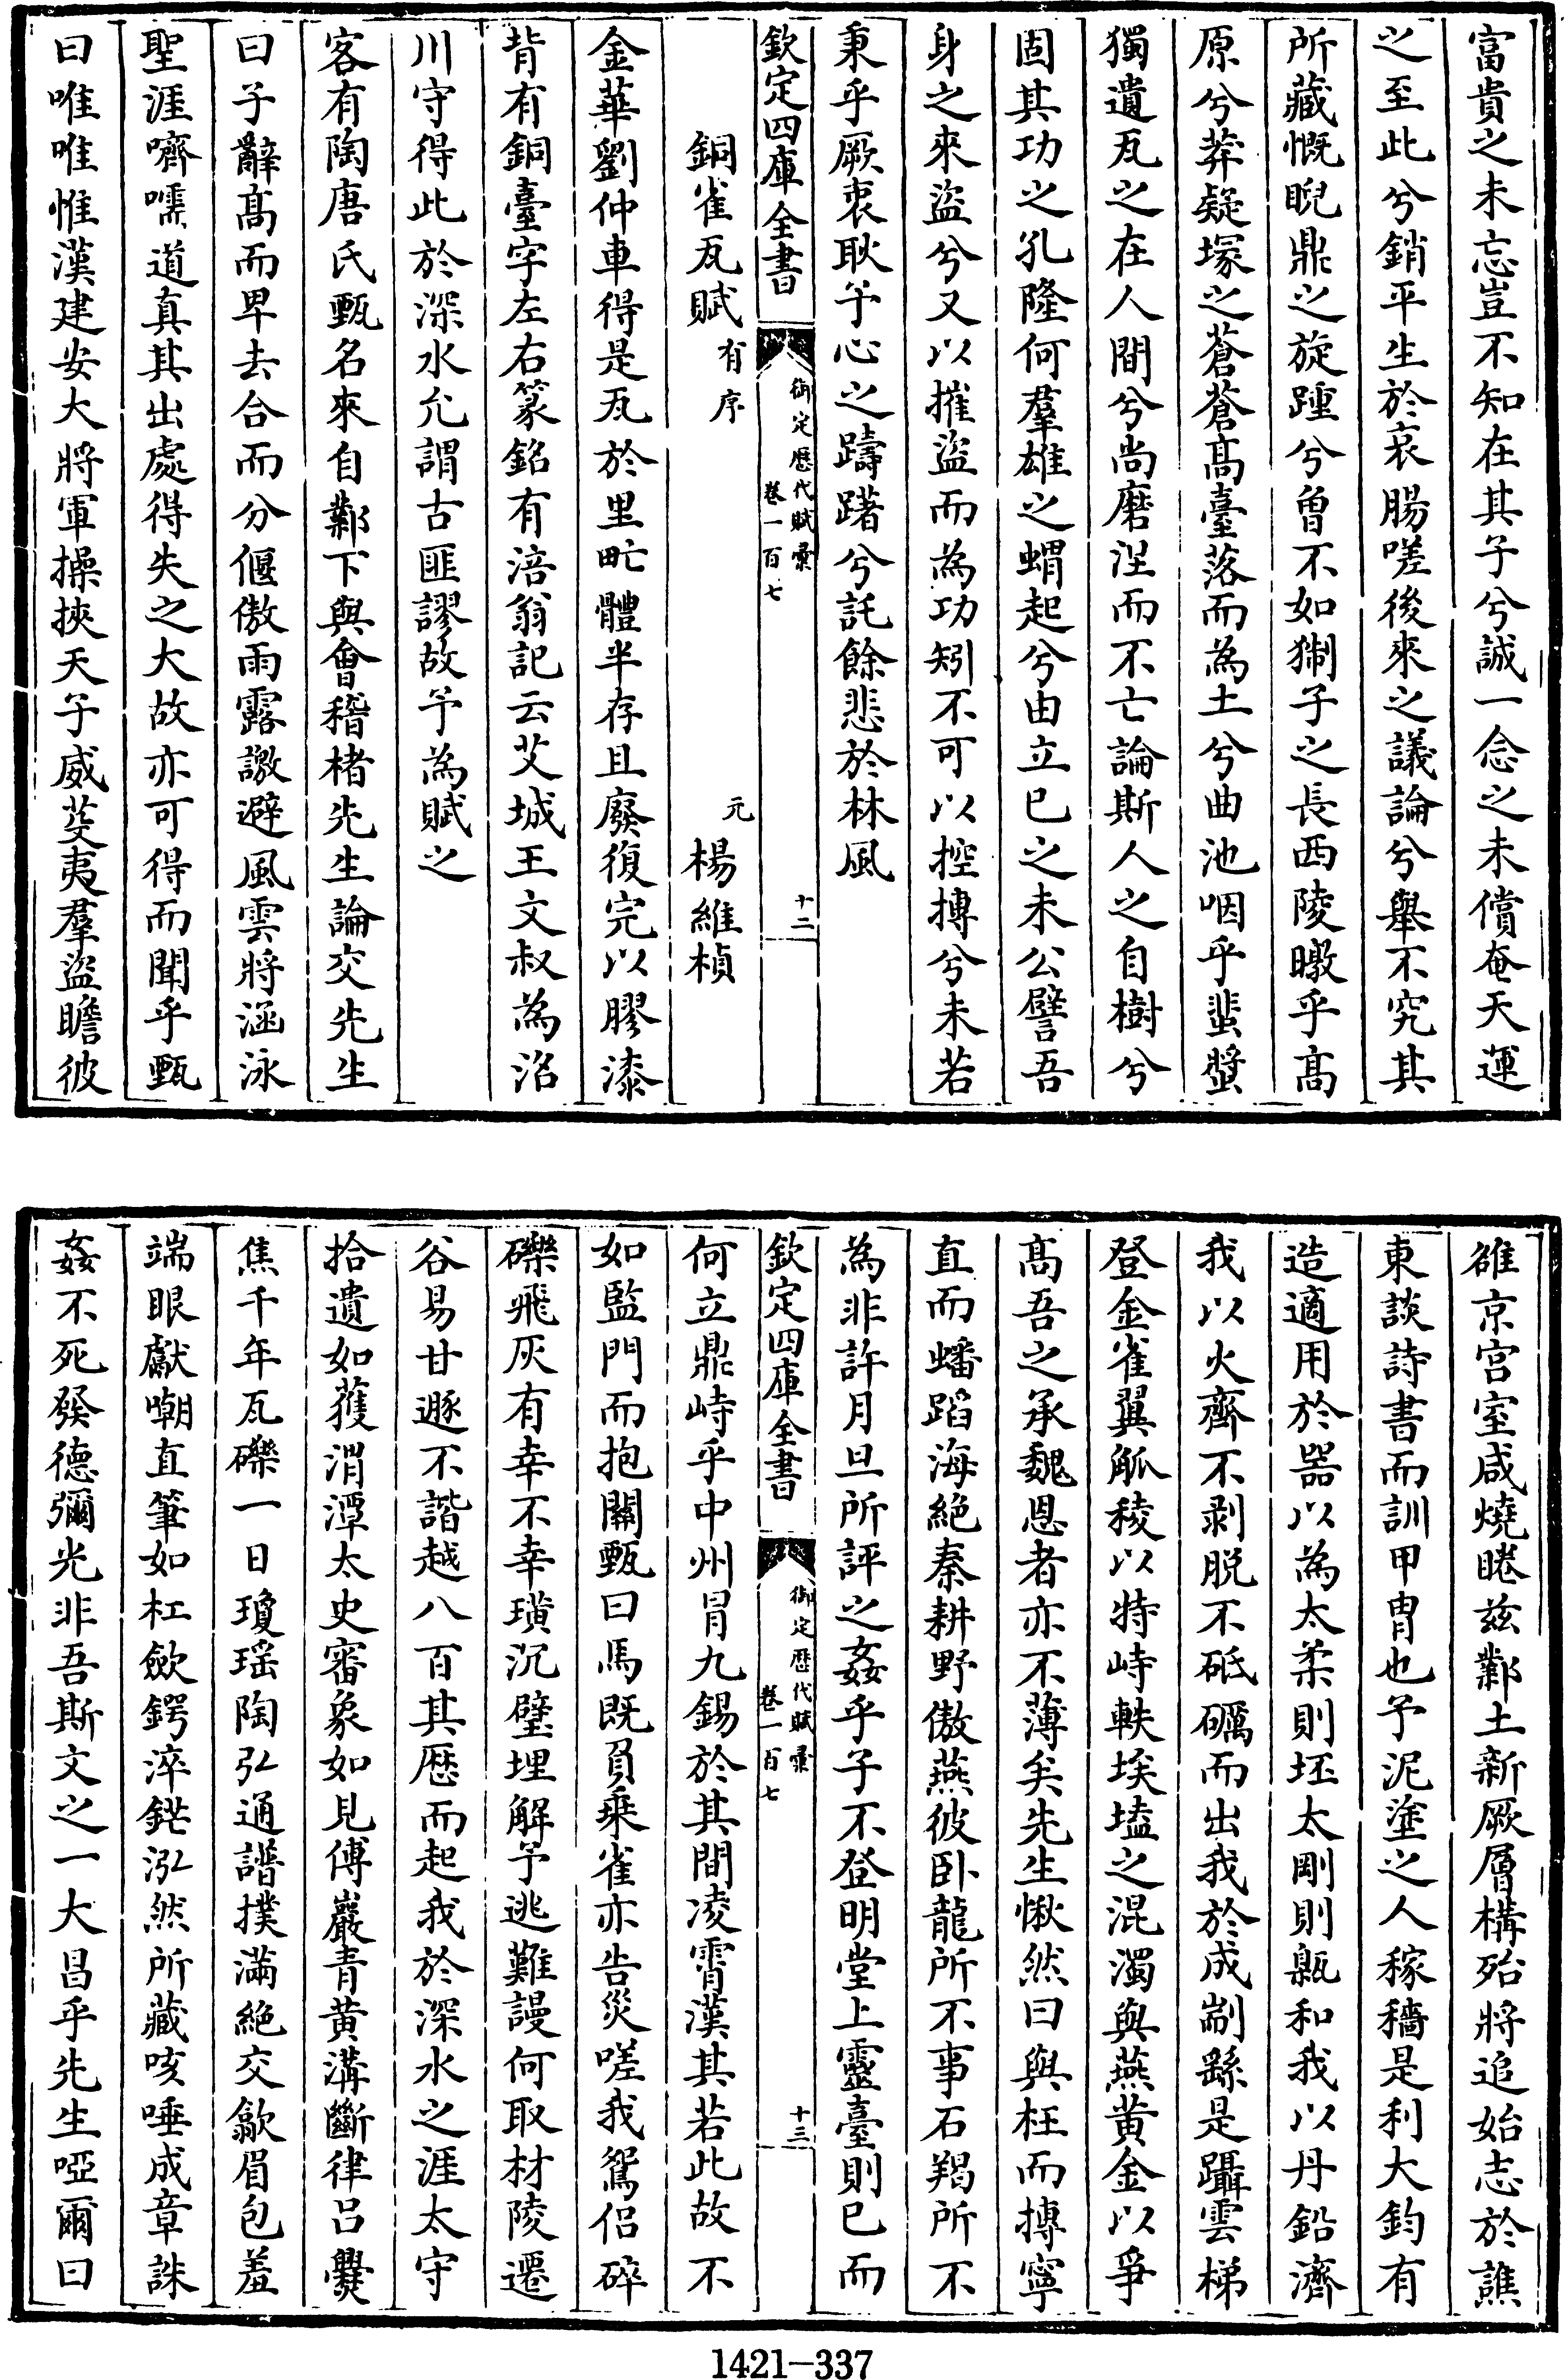 富貴之未忘豈不知在其子兮誠一念之未償奄天運
之至此兮銷平生於哀腸嗟後來之議論兮舉不究其
所藏慨睨鼎之旋踵兮曾不如猘子之長西陵曒乎高
原兮莽疑塚之蒼蒼高臺落而為土兮曲池咽乎蜚螿
獨遺瓦之在人間兮尚磨涅而不亡論斯人之自樹兮
固其功之孔隆何羣雄之蝟起兮由立已之未公譬吾
身之來盜兮又以摧盜而為功矧不可以控摶兮未若
秉乎厥衷耿予心之躊躇兮託餘悲於林風
欽定四庫全書 御定歷代賦彙 卷一百七 十二
銅雀瓦賦 有序 元 楊維楨
金華劉仲車得是瓦於里甿體半存且廢復完以膠漆
背有銅臺字左右篆銘有涪翁記云艾城王文叔為洺
川守得此於深水允謂古匪謬故予為賦之
客有陶唐氏甄名來自鄴下與會稽楮先生論交先生
曰子辭高而卑去合而分偃傲雨露邀避風雲將涵泳
聖涯嚌嚅道真其出處得失之大故亦可得而聞乎甄
曰唯唯惟漢建安大將軍操挾天子威芟夷羣盜瞻彼
雒京宫室咸燒睠兹鄴土新厥層構殆將追始志於譙
東談詩書而訓甲胄也予泥塗之人稼穡是利大鈞有
造適用於器以為太柔則坯太剛則甈和我以丹鉛濟
我以火齊不剥脱不砥礪而出我於成崱繇是躡雲梯
登金雀翼觚稜以特峙軼埃壒之混濁與燕黄金以爭
高吾之承魏恩者亦不薄矣先生愀然曰與枉而摶寧
直而蟠蹈海絶秦耕野傲燕彼卧龍所不事石羯所不
為非許月旦所評之姦乎子不登明堂上靈臺則已而
欽定四庫全書 御定歷代賦彙 卷一百七 十三
何立鼎峙乎中州冐九錫於其間凌霄漢其若此故不
如監門而抱關甄曰馬既負乘雀亦告災嗟我鴛侣碎
礫飛灰有幸不幸璜沉璧埋解予逃難謾何取材陵遷
谷易甘遯不諧越八百其歴而起我於深水之涯太守
拾遺如獲渭潭太史審象如見傅巖青黄溝斷律吕爨
焦千年瓦礫一日瓊瑶陶弘通譜撲滿絶交歙眉包羞
端眼獻嘲直筆如杠歛鍔淬鋩泓然所藏咳唾成章誅
姦不死發德彌光非吾斯文之一大昌乎先生啞爾曰
1421-337